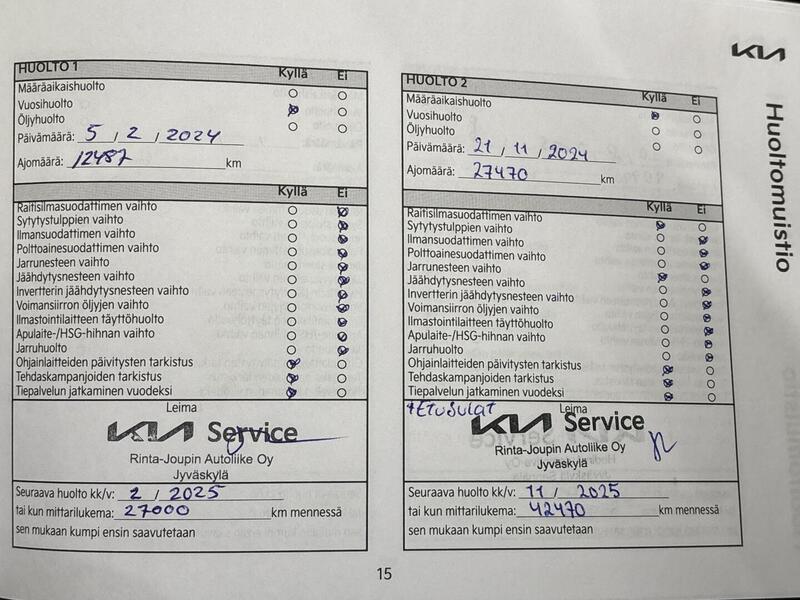 KIA
Huoltomuistio
HUOLTO 1
Kyllä Ei
Määräaikaishuolto
Vuosihuolto
Öljyhuolto
Päivämäärä: 5 / 2 / 2024
Ajomäärä: 12487 km
Kyllä Ei
Raitisilmasuodattimen vaihto
Sytytystulppien vaihto
Ilmansuodattimen vaihto
Polttoainesuodattimen vaihto
Jarrunesteen vaihto
Jäähdytysnesteen vaihto
Invertterin jäähdytysnesteen vaihto
Voimansiirron öljyjen vaihto
Ilmastointilaitteen täyttöhuolto
Apulaite-/HSG-hihnan vaihto
Jarruhuolto
Ohjainlaitteiden päivitysten tarkistus
Tehdaskampanjoiden tarkistus
Tiepalvelun jatkaminen vuodeksi
Leima
KIA Service
Rinta-Joupin Autoliike Oy
Jyväskylä
Seuraava huolto kk/v: 2 / 2025
tai kun mittarilukema: 27000 km mennessä
sen mukaan kumpi ensin saavutetaan
HUOLTO 2
Kyllä Ei
Määräaikaishuolto
Vuosihuolto
Öljyhuolto
Päivämäärä: 21 / 11 / 2024
Ajomäärä: 27470 km
Kyllä Ei
Raitisilmasuodattimen vaihto
Sytytystulppien vaihto
Ilmansuodattimen vaihto
Polttoainesuodattimen vaihto
Jarrunesteen vaihto
Jäähdytysnesteen vaihto
Invertterin jäähdytysnesteen vaihto
Voimansiirron öljyjen vaihto
Ilmastointilaitteen täyttöhuolto
Apulaite-/HSG-hihnan vaihto
Jarruhuolto
Ohjainlaitteiden päivitysten tarkistus
Tehdaskampanjoiden tarkistus
Tiepalvelun jatkaminen vuodeksi
+Etusulat Leima
KIA Service
Rinta-Joupin Autoliike Oy
Jyväskylä
Seuraava huolto kk/v: 11 / 2025
tai kun mittarilukema: 42470 km mennessä
sen mukaan kumpi ensin saavutetaan
15